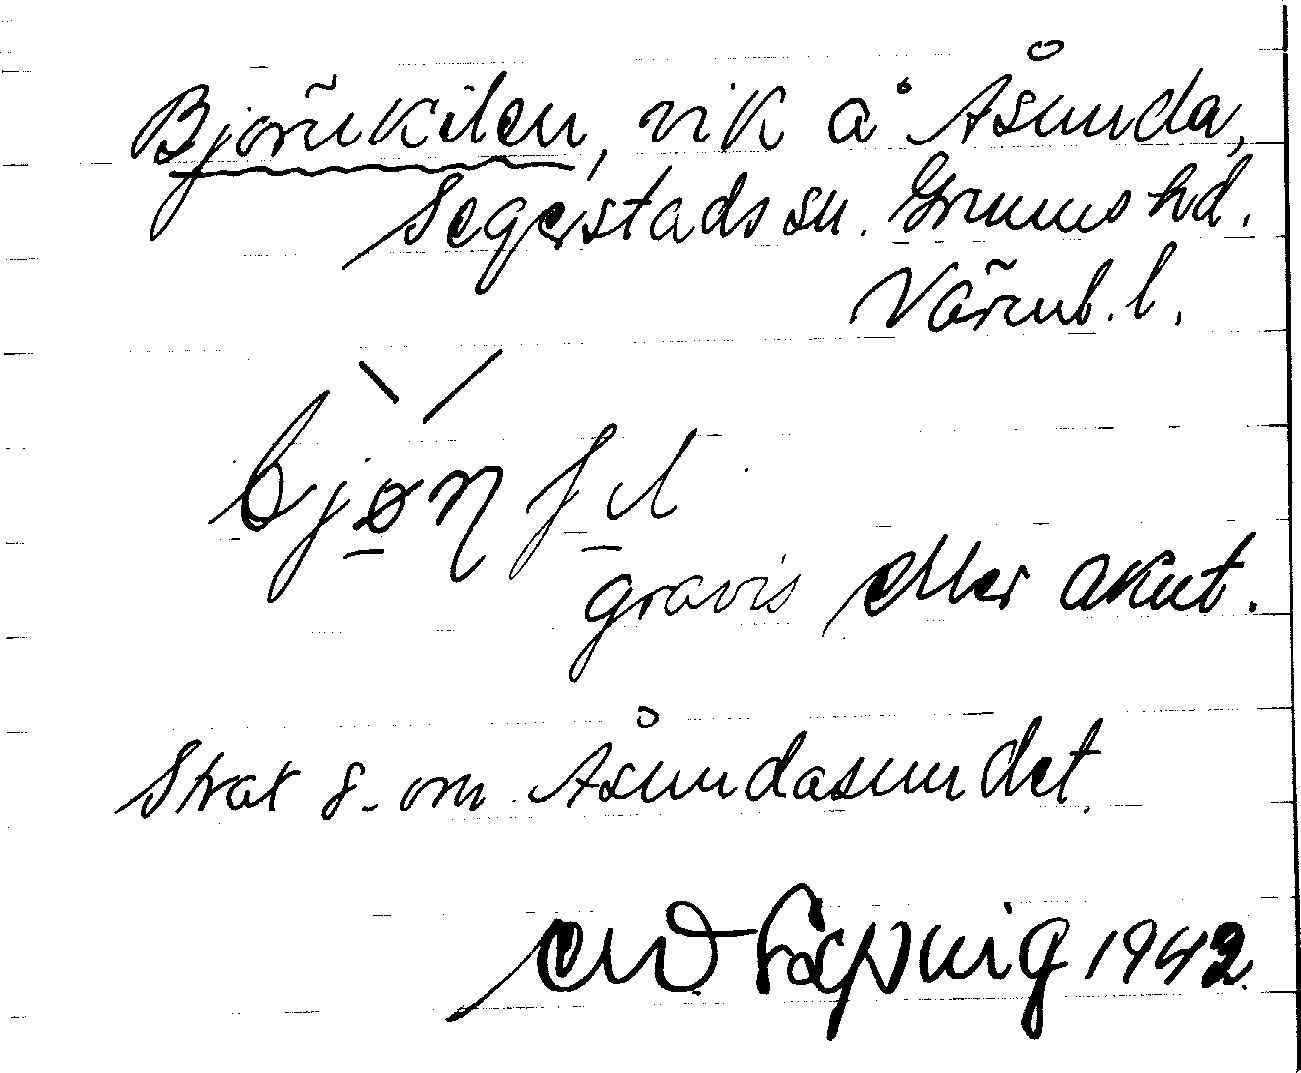 Björnkilen, vik å Åsunda,
Segerstads sn. Grums hd.
Värml. l.
bjønʃil
gravis eller akut.
Strax s. om Åsundasundet.
1942